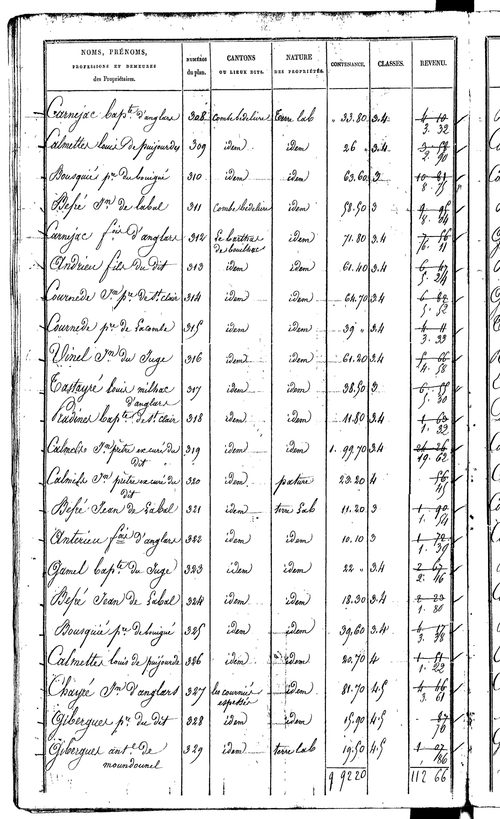 NOMS, PRÉNOMS, PROFESSIONS ET DEMEURES des Propriétaires. NUMÉROS du plan. CANTONS OU LIEUX DITS. NATURE DES PROPRIÉTÉS. CONTENANCE. CLASSES. REVENU.
Carnejac Bapte d'anglars 308 Combe bédelure Terre lab " 33.80 3.4 4 10
3. 32
Calmette Louis de puijourdes 309 idem idem 26 " 3.4
2. 90
Bousquié pre du bouigué 310 idem idem 63.60 3 10 81
8. 75
Béfré Jn de labal 311 Combe bédelure idem 58.50 3 9 95
Carnejac fois d'anglars 312 Le barthas de bouthac idem 71.80 3.4
Andrieu fils du dit 313 idem idem 61.40 3.4 6 47
5. 24
Cournède Jn pre de St clair 314 idem idem 64.70 3.4 6 82
5. 52
Cournède pre de Lacombe 315 idem idem 39 " 3.4 4 11
3. 33
Vinel Jn du Juge 316 idem idem 61.20 3.4 5 66
4. 58
Tastayré louis milhac d'anglars 317 idem idem 38.50 3 6 55
5. 30
Radines Bapte de St clair 318 idem idem 11.80 3.4 1 63
1. 32
Calmels Jn prêtre ex curé du dit 319 idem idem 1. 99.70 3.4 24 26
19. 62
Calmels Jn prêtre ex curé de dit 320 idem pature 23.20 4 56
45
Béfré Jean de Labal 321 idem terre Lab 11.20 3 1 90
1. 54
Antérieu fois d'anglars 322 idem idem 10.10 3 1 72
1. 39
Gamel Bapte du Juge 323 idem idem 22 " 3.4 2 67
2. 16
Béfré Jean de Labal 324 idem idem 18.30 3.4 2 23
1. 80
Bousquié pre de bouigué 325 idem idem 39,60 3.4 4 17
3. 38
Calmette louis de puijourde 326 idem idem 20,70 4 1 51
1. 22
Chaypé Jn d'anglars 327 las cournié espessio idem 81.70 4.5 4 46
3. 61
Gibergues pre du dit 328 idem idem 15,90 4.5 87
70
Gibergues antne de moundounel 329 idem terre lab 19.50 4.5 1 07
86
9 92 20 112 66